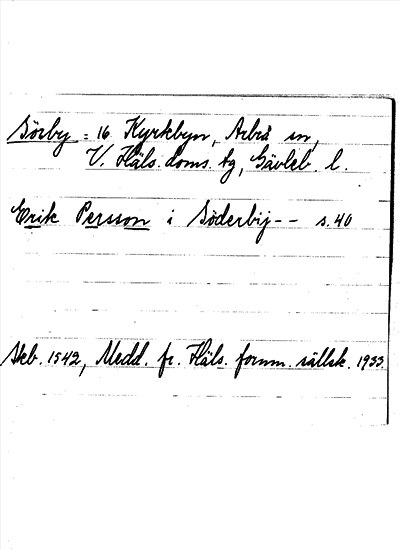 Sörby = 16 Kyrkbyn, Arbrå sn,
V. Häls. doms. bg, Gävleb. l.
Erik Persson i Söderbij-- s. 40
Skb. 1542, Medd. fr. Häls. fornm. sällsk. 1933.